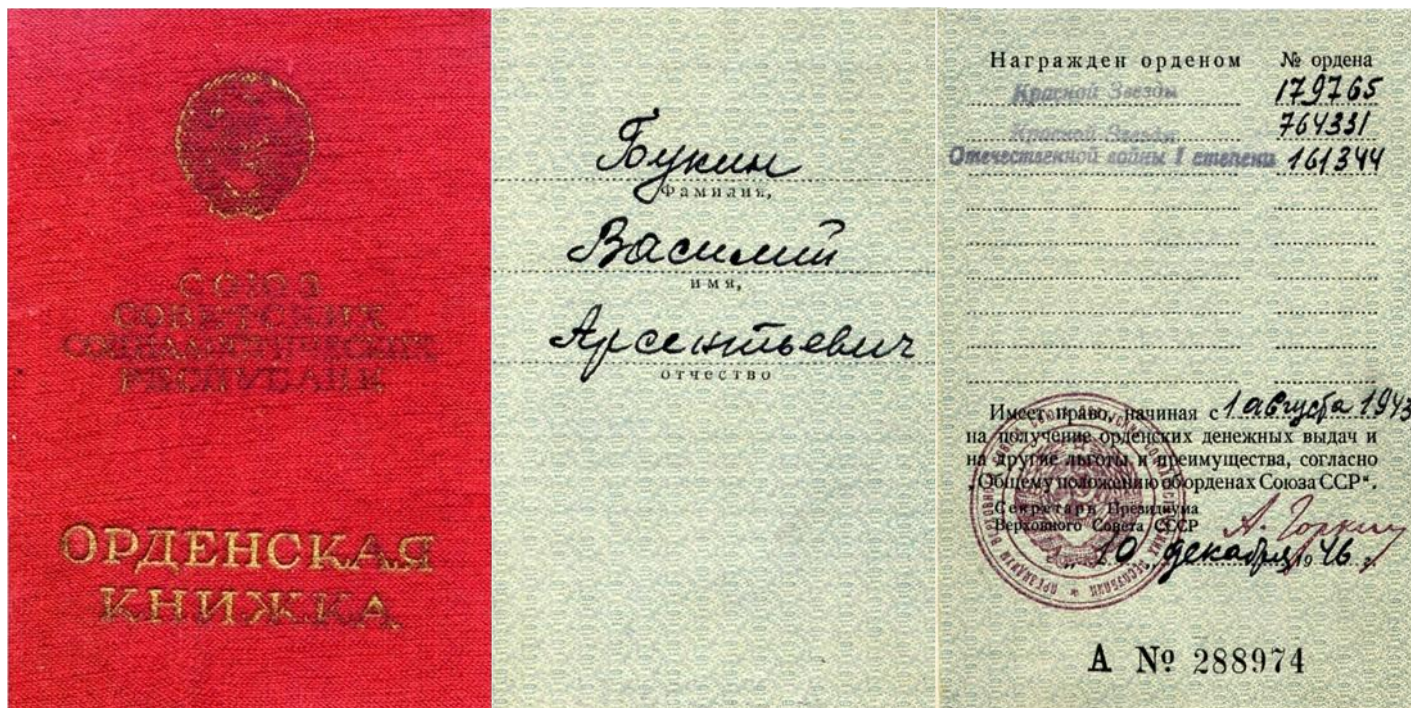 СОЮЗ
СОВЕТСКИХ
СОЦИАЛИСТИЧЕСКИХ
РЕСПУБЛИК
ОРДЕНСКАЯ
КНИЖКА
Букин
Фамилия,
Василий
имя,
Арсентьевич
отчество
Награжден орденом № ордена
Красной Звезды 179765
Красной Звезды 764331
Отечественной войны I степени 161344
Имеет право, начиная с 1 августа 1943
на получение орденских денежных выдач и
на другие льготы и преимущества, согласно
„Общему положению об орденах Союза ССР".
Секретарь Президиума
Верховного Совета СССР А. Горкин
„10" декабря 1946 г.
А № 288974